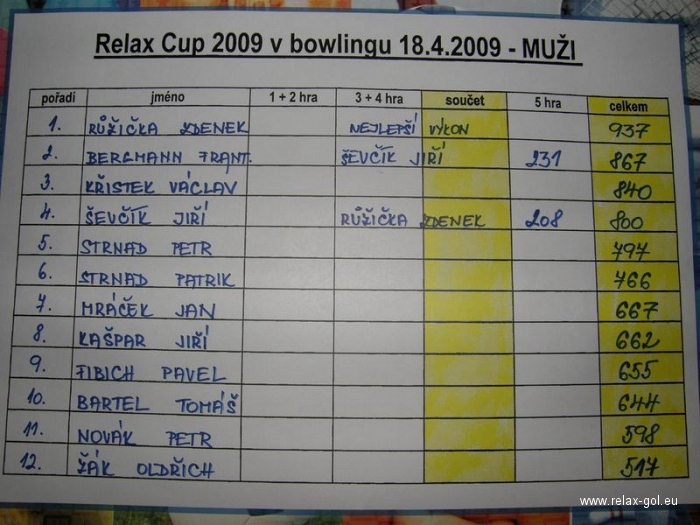 Relax Cup 2009 v bowlingu 18.4.2009 - MUŽI
pořadí jméno 1 + 2 hra 3 + 4 hra součet 5 hra celkem
1. RŮŽIČKA ZDENEK NEJLEPŠÍ VÝKON 937
2. BERGMANN FRANT. ŠEVČÍK JIŘÍ 231 867
3. KŘISTEK VÁCLAV 840
4. ŠEVČÍK JIŘÍ RŮŽIČKA ZDENEK 208 800
5. STRNAD PETR 797
6. STRNAD PATRIK 766
7. MRÁČEK JAN 667
8. KAŠPAR JIŘÍ 662
9. FIBICH PAVEL 655
10. BARTEL TOMÁŠ 644
11. NOVÁK PETR 598
12. ŽÁK OLDŘICH 517
www.relax-gol.eu